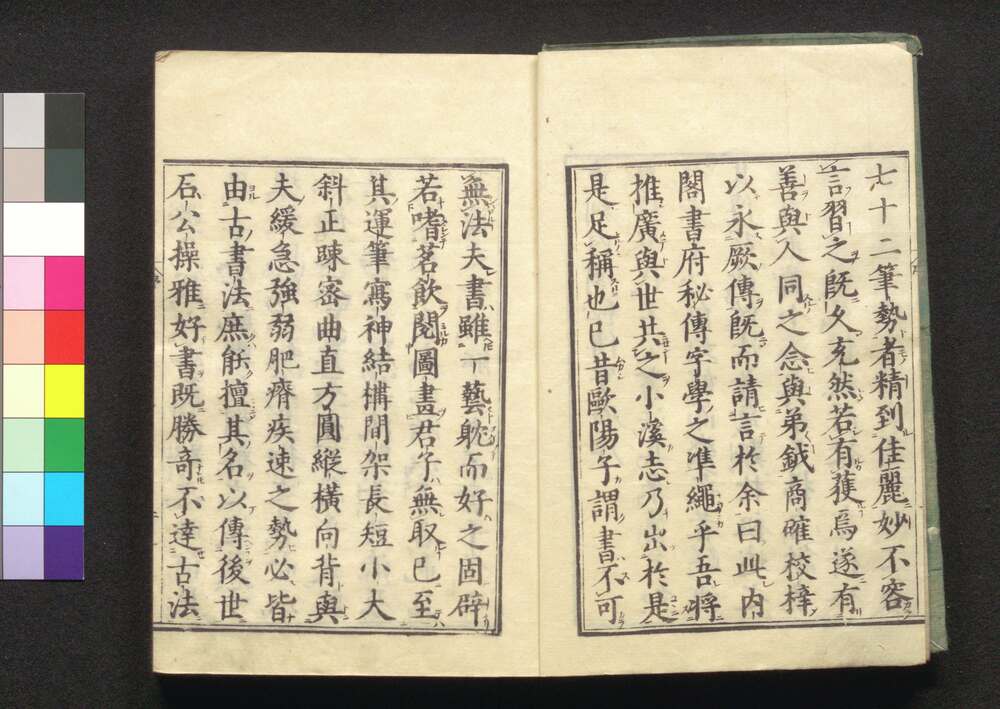 七十二筆勢者精到佳麗妙不容
言習之既久充然若有獲焉遂有
善與人同之念與弟鉞商確校梓
以永厥傳既而請言於余曰此內
閣書府秘傳字學之準繩乎吾將
推廣與世共之小溪志乃出於是
是足稱也已昔歐陽子謂書不可
無法夫書雖一藝躭而好之固辟
若嗜茗飲閱圖畫君子無取已至
其運筆寫神結構間架長短小大
斜正踈密曲直方圓縱橫向背與
夫緩急強弱肥瘠疾速之勢必皆
由古書法庶能擅其名以傳後世
石公操雅好書既勝奇不達古法